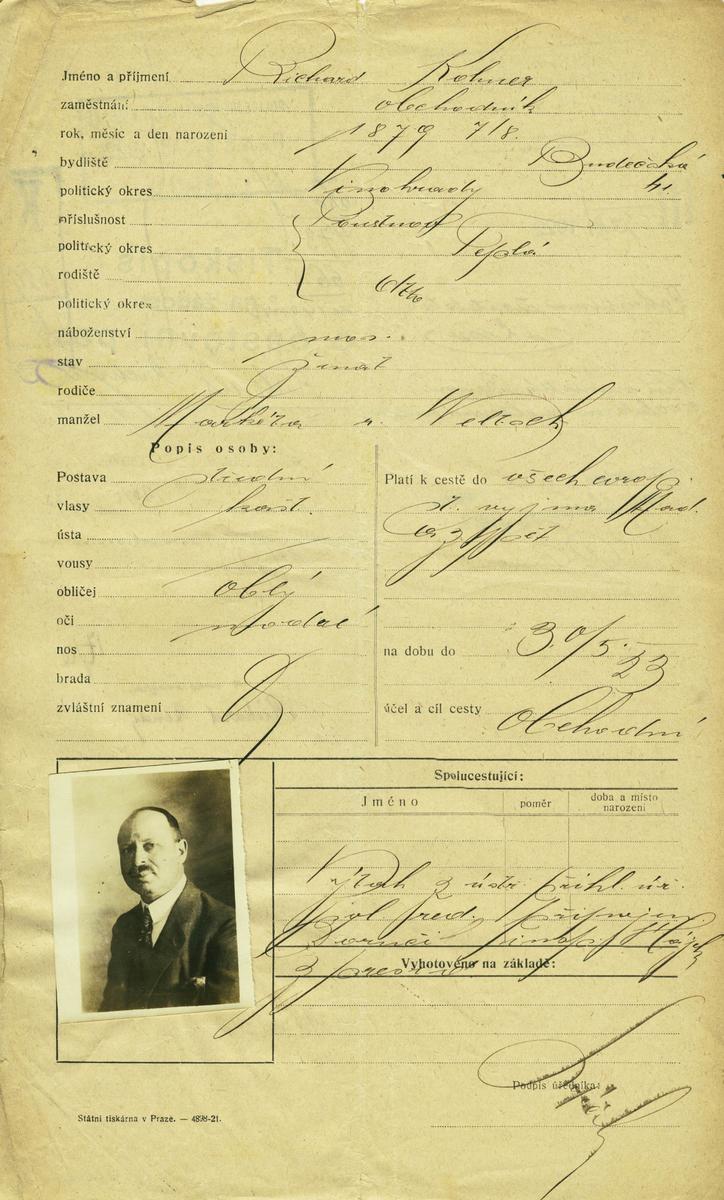 Jméno a příjmení Richard Kohner
zaměstnání obchodník
rok, měsíc a den narození 1879 7/8.
bydliště Budečská
politický okres Vinohrady 41.
příslušnost Poustnov
politický okres Teplá
rodiště dtto
politický okres
náboženství mos.
stav ženat
rodiče
manžel Markéta r. Weltsch
Popis osoby:
Postava střední
vlasy kašt.
ústa
vousy
obličej oblý
oči modré
nos
brada
zvláštní znamení
Platí k cestě do všech evrop.
st. vyjma Maď.
a zpět
na dobu do 30/5. 23
účel a cíl cesty obchodní
Spolucestující:
Jméno poměr doba a místo narození
Výtah z ústř. přihl. úř.
pol. řed.
Vyhotoveno na základě:
Podpis úředníka:
Státní tiskárna v Praze. — 4898-21.